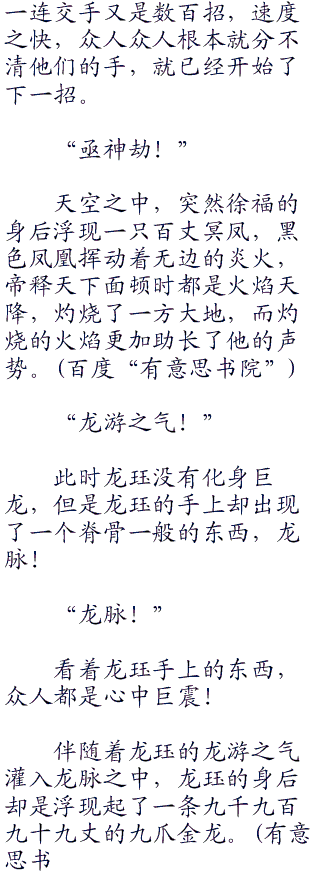 一连交手又是数百招，速度
之快，众人众人根本就分不
清他们的手，就已经开始了
下一招。
“亟神劫！”
天空之中，突然徐福的
身后浮现一只百丈冥凤，黑
色凤凰挥动着无边的炎火，
帝释天下面顿时都是火焰天
降，灼烧了一方大地，而灼
烧的火焰更加助长了他的声
势。(百度“有意思书院”)
“龙游之气！”
此时龙珏没有化身巨
龙，但是龙珏的手上却出现
了一个脊骨一般的东西，龙
脉！
“龙脉！”
看着龙珏手上的东西，
众人都是心中巨震！
伴随着龙珏的龙游之气
灌入龙脉之中，龙珏的身后
却是浮现起了一条九千九百
九十九丈的九爪金龙。(有意
思书